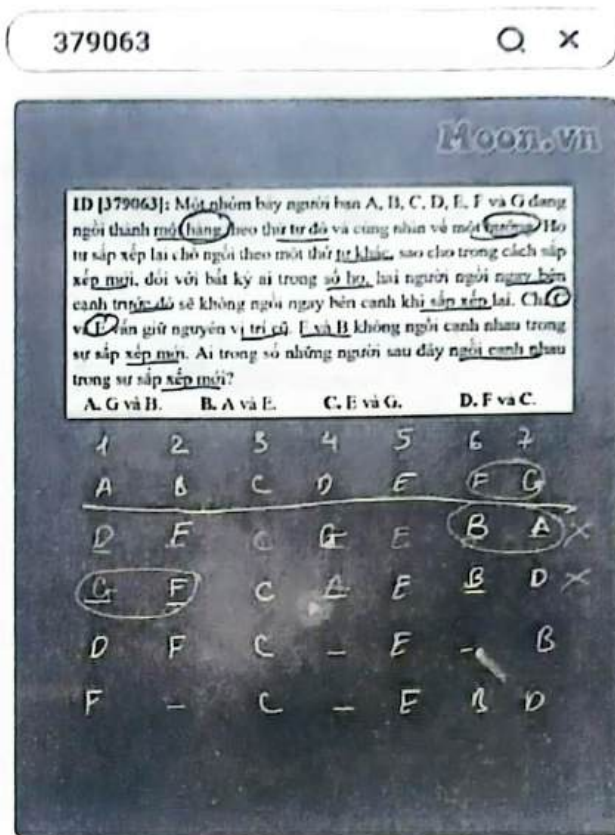 379063
Moon.vn
ID [379063]: Một nhóm bảy người bạn A, B, C, D, E, F và G đang
ngồi thành một hàng theo thứ tự đó và cùng nhìn về một hướng. Họ
tự sắp xếp lại chỗ ngồi theo một thứ tự khác, sao cho trong cách sắp
xếp mới, đối với bất kỳ ai trong số họ, hai người ngồi ngay bên
cạnh trước đó sẽ không ngồi ngay bên cạnh khi sắp xếp lại. Chỉ C
và E vẫn giữ nguyên vị trí cũ. E và B không ngồi cạnh nhau trong
sự sắp xếp mới. Ai trong số những người sau đây ngồi cạnh nhau
trong sự sắp xếp mới?
A. G và B. B. A và E. C. E và G. D. F và C.
1 2 3 4 5 6 7
A B C D E F G
D F C G E B A X
G F C A E B D X
D F C _ E _ B
F _ C _ E B D